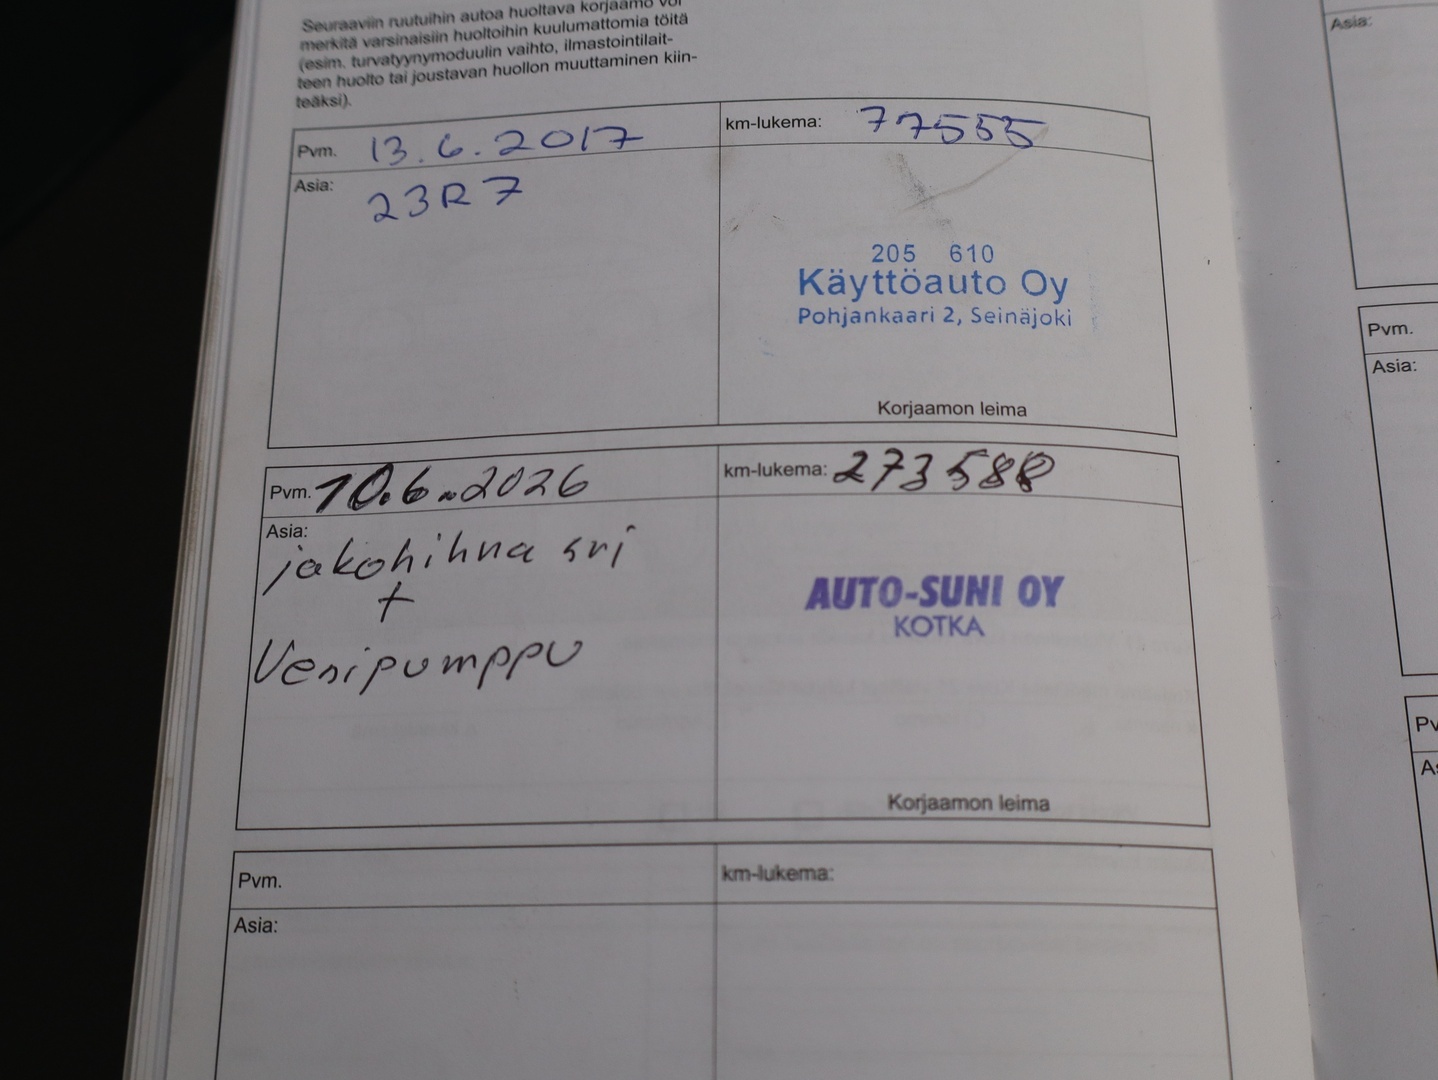 Seuraaviin ruutuihin autoa huoltava korjaamo voi
merkitä varsinaisiin huoltoihin kuulumattomia töitä
(esim. turvatyynymoduulin vaihto, ilmastointilait-
teen huolto tai joustavan huollon muuttaminen kiin-
teäksi).
Pvm. 13.6.2017
km-lukema: 77555
Asia: 23R7
205 610
Käyttöauto Oy
Pohjankaari 2, Seinäjoki
Korjaamon leima
Pvm. 10.6.2026
km-lukema: 273588
Asia:
jakohihna srj
+
Vesipumppu
AUTO-SUNI OY
KOTKA
Korjaamon leima
Pvm.
km-lukema:
Asia:
Asia:
Pvm.
Asia: